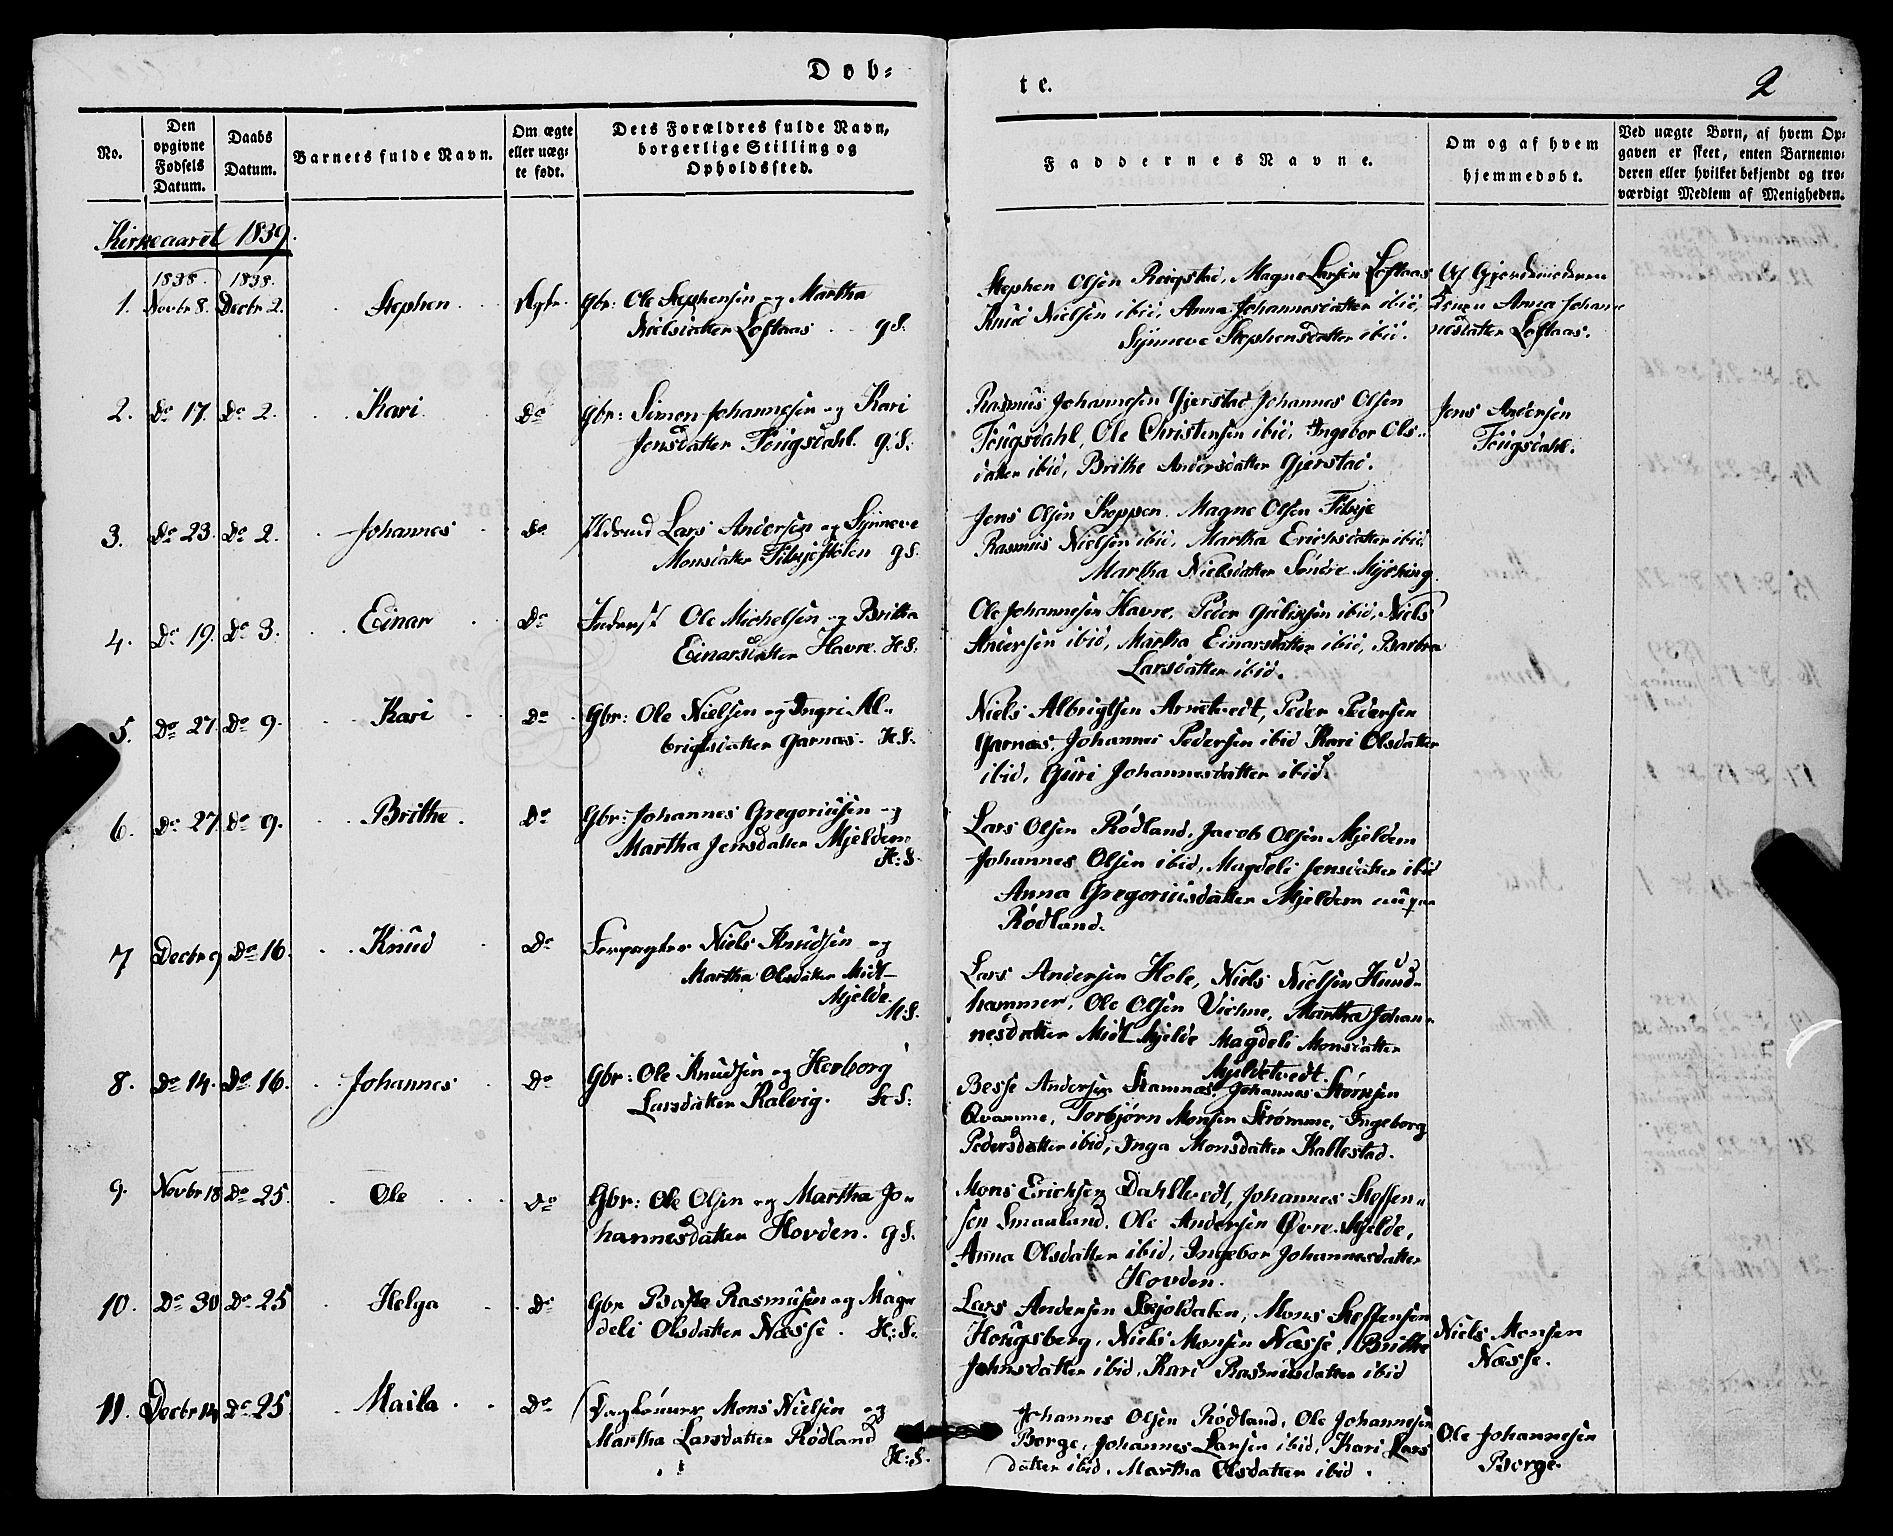 Døb-
te.
2
No.
Den opgivne Fødsels Datum.
Daabs Datum.
Barnets fulde Navn.
Om ægte eller uæg- te født.
Dets Forældres fulde Navn, borgerlige Stilling og Opholdssted.
Faddernes Navne.
Om og af hvem hjemmedøbt.
Ved uægte Børn, af hvem Op- gaven er skeet, enten Barnemo- deren eller hvilket bekjendt og tro- værdigt Medlem af Menigheden.
Kirkeaaret 1839.
1838. 1838.
1. Novbr 8. Decbr 2. Stephen Ægte. Gbr: Ole Stephensen og Martha
Nielsdatter Loftaas gS.
Stephen Olsen Raugstad, Magne Larsen Loftaas
Knud Nielsen ibid, Anna Johannesdatter ibid,
Synneve Stephensdatter ibid.
Af Gjordemoderen
Anna Johan-
nesdatter Loftaas.
2. Do 17. Do 2. Kari Do Gbr: Simon Johannesen og Kari
Jensdatter Fougsdahl. g:S:
Rasmus Johannesen Gjerstad, Johannes Olsen
Fougsdahl, Ole Christensen ibid, Ingebor Ols-
datter ibid, Brithe Andersdatter Gjerstad.
Jens Andersen
Fougsdahl.
3. Do 23. Do 2. Johannes Do Lars Andersen og Synneve
Monsdatter gS.
Jens Olsen Koppen. Magne Olsen Tibye
Rasmus Nielsen ibid, Martha Erichsdatter ibid,
Martha Nielsdatter Søndre Mjelving.
4. Do 19. Do 3. Einar Do Inderst Ole Michelsen og Britha
Einarsdatter Havre. H:S.
Ole Johannesen Havre, Peder ibid, Niels
Andersen ibid, Martha Einarsdatter ibid, Barbra
Larsdatter ibid.
5. Do 27. Do 9. Kari Do Gbr: Ole Nielsen og Ingri Al-
brigtsdatter Garnæs. H.S.
Niels Albrigtsen Arnetvedt, Peder Pedersen
Garnæs, Johannes Pedersen ibid Kari Olsdatter
ibid, Guri Johannesdatter ibid.
6. Do 27 Do 9. Brithe. Do Gbr: Johannes Gregoriusen og
Martha Jensdatter Mjeldem
H:S.
Lars Olsen Rødland, Jacob Olsen Mjeldem
Johannes Olsen ibid, Magdeli Jensdatter ibid
Anna Gregoriusdatter Mjeldem
Rødland.
7 Decbr 9 Do 16. Knud Do Forpagter Niels Knudsen og
Martha Olsdatter Midt-
Mjelde.
M.S.
Lars Andersen Hole, Niels Nielsen Hund-
hammer, Ole Olsen Viehne, Martha Johan-
nesdatter Midt Mjelde Magdeli Monsdatter
Mjeldetvedt.
8. Do 14. Do 16. Johannes Do Gbr: Ole Knudsen og Herborg
Larsdatter Kalvig. H:S:
Besse Andersen Stamnæs, Johannes Størksen
Qvamme, Torbjørn Monsen Strømme, Ingeborg
Pedersdatter ibid, Inga Monsdatter Kallestad.
9. Novbr 18 Do 25. Ole Do Gbr: Ole Olsen og Martha Jo-
hannesdatter Hovden. gS.
Mons Erichsen Dahltvedt, Johannes Steffen-
sen Smaaland. Ole Andersen Øvre Mjelde,
Anna Olsdatter ibid, Ingebor Johannesdatter
Hovden.
10. Do 30 Do 25 Helga Do Gbr Rasmusen og Mag-
deli Olsdatter Næsse. H:S.
Lars Andersen Skjoldalen, Mons Steffensen
Hougsberg, Niels Monsen Næsse, Brithe
Johnsdatter ibid, Kari Rasmusdatter ibid
Niels Monsen
Næsse.
11. Decbr 14 Do 25. Maila Do Daglønner Mons Nielsen og
Martha Larsdatter Rødland
H:S.
Johannes Olsen Rødland, Ole Johannesen
Borge, Johannes Larsen ibid, Kari Lars
datter ibid, Martha Olsdatter ibid.
Ole Johannesen
Borge.